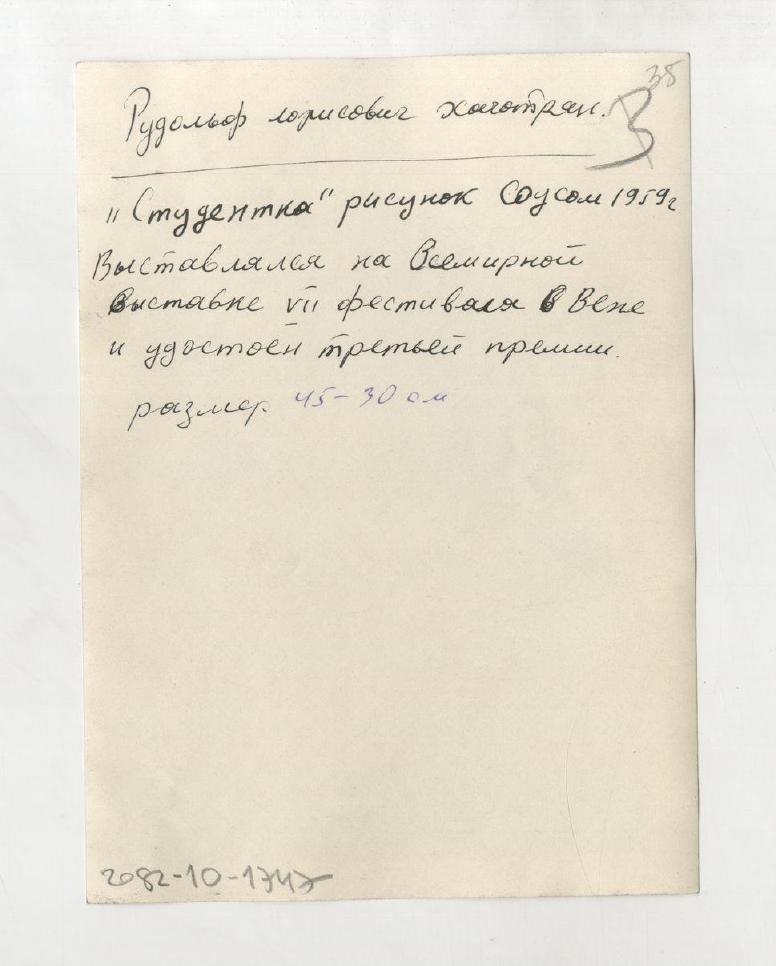 38
Рудольф лорисович хачатрян.
"Студентка" рисунок Соусом 1959г
Выставлялся на Всемирной
Выставке VII фестиваля в Вене
и удостоен третьей премии.
размер 45-30 см
2082-10-1747